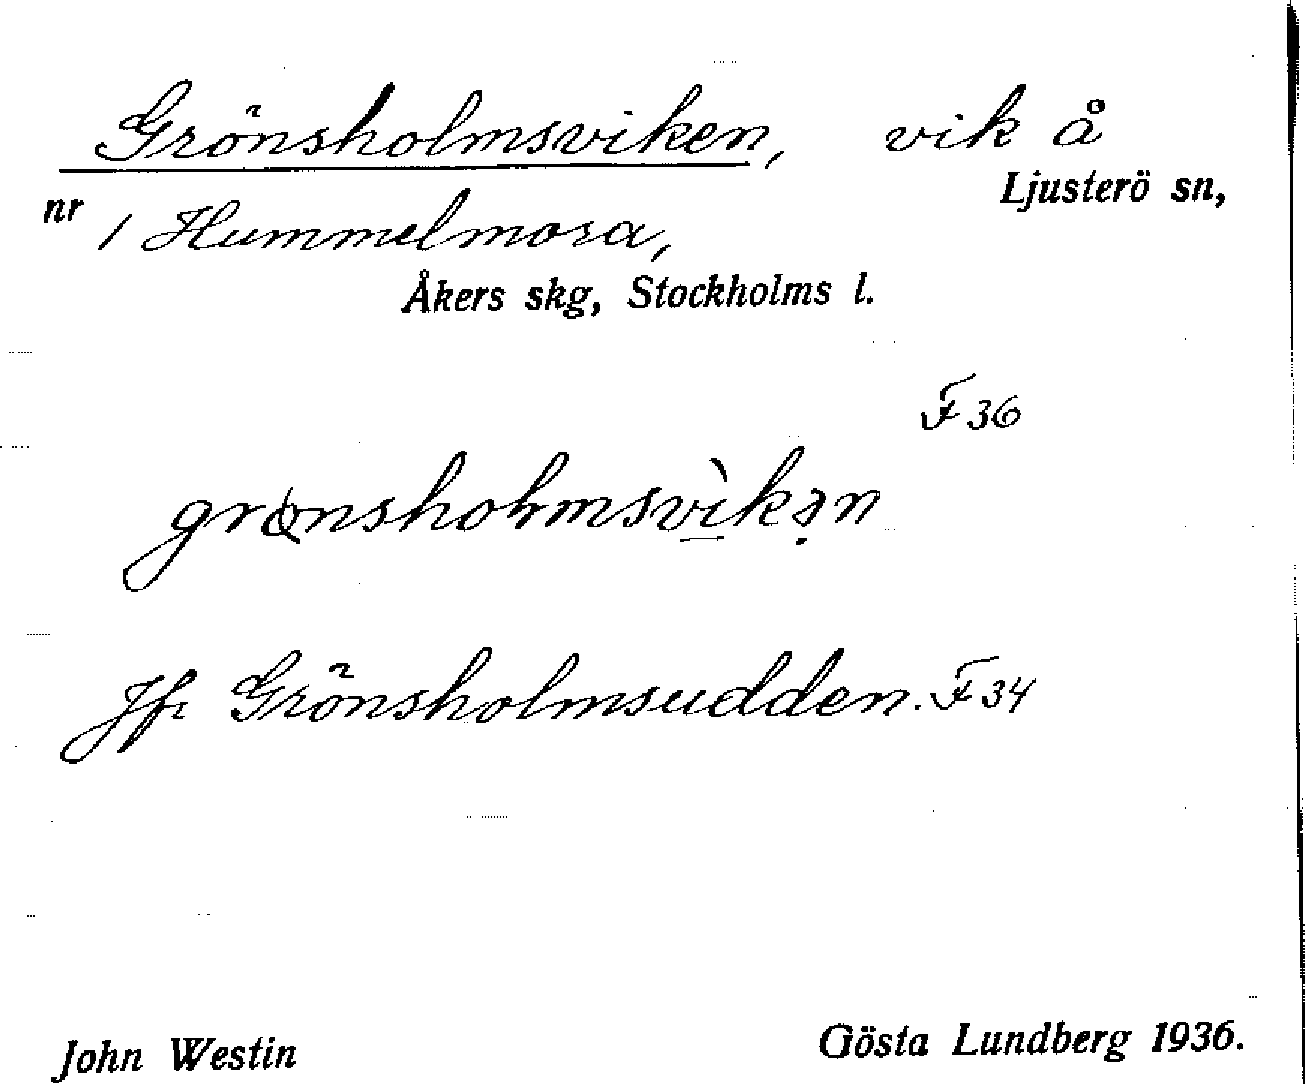 Grönsholmsviken, vik å
Ljusterö sn,
nr 1 Hummelmora,
Åkers skg, Stockholms l.
F 36
grønsholmsvìkən
Jfr Grönsholmsudden. F 34
John Westin
Gösta Lundberg 1936.